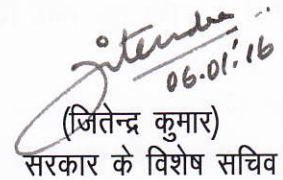 Jitendra
06.01.16
(जितेन्द्र कुमार)
सरकार के विशेष सचिव